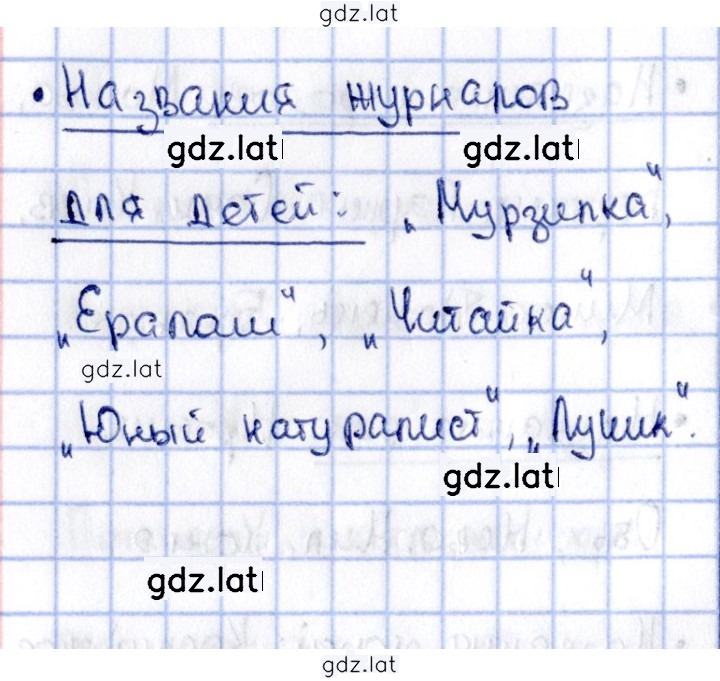 gdz.lat
• Названия журналов
gdz.lat gdz.lat
для детей: „Мурзилка“,
„Ералаш“, „Читайка“,
gdz.lat
„Юный натуралист“, „Лучик“.
gdz.lat
gdz.lat
gdz.lat